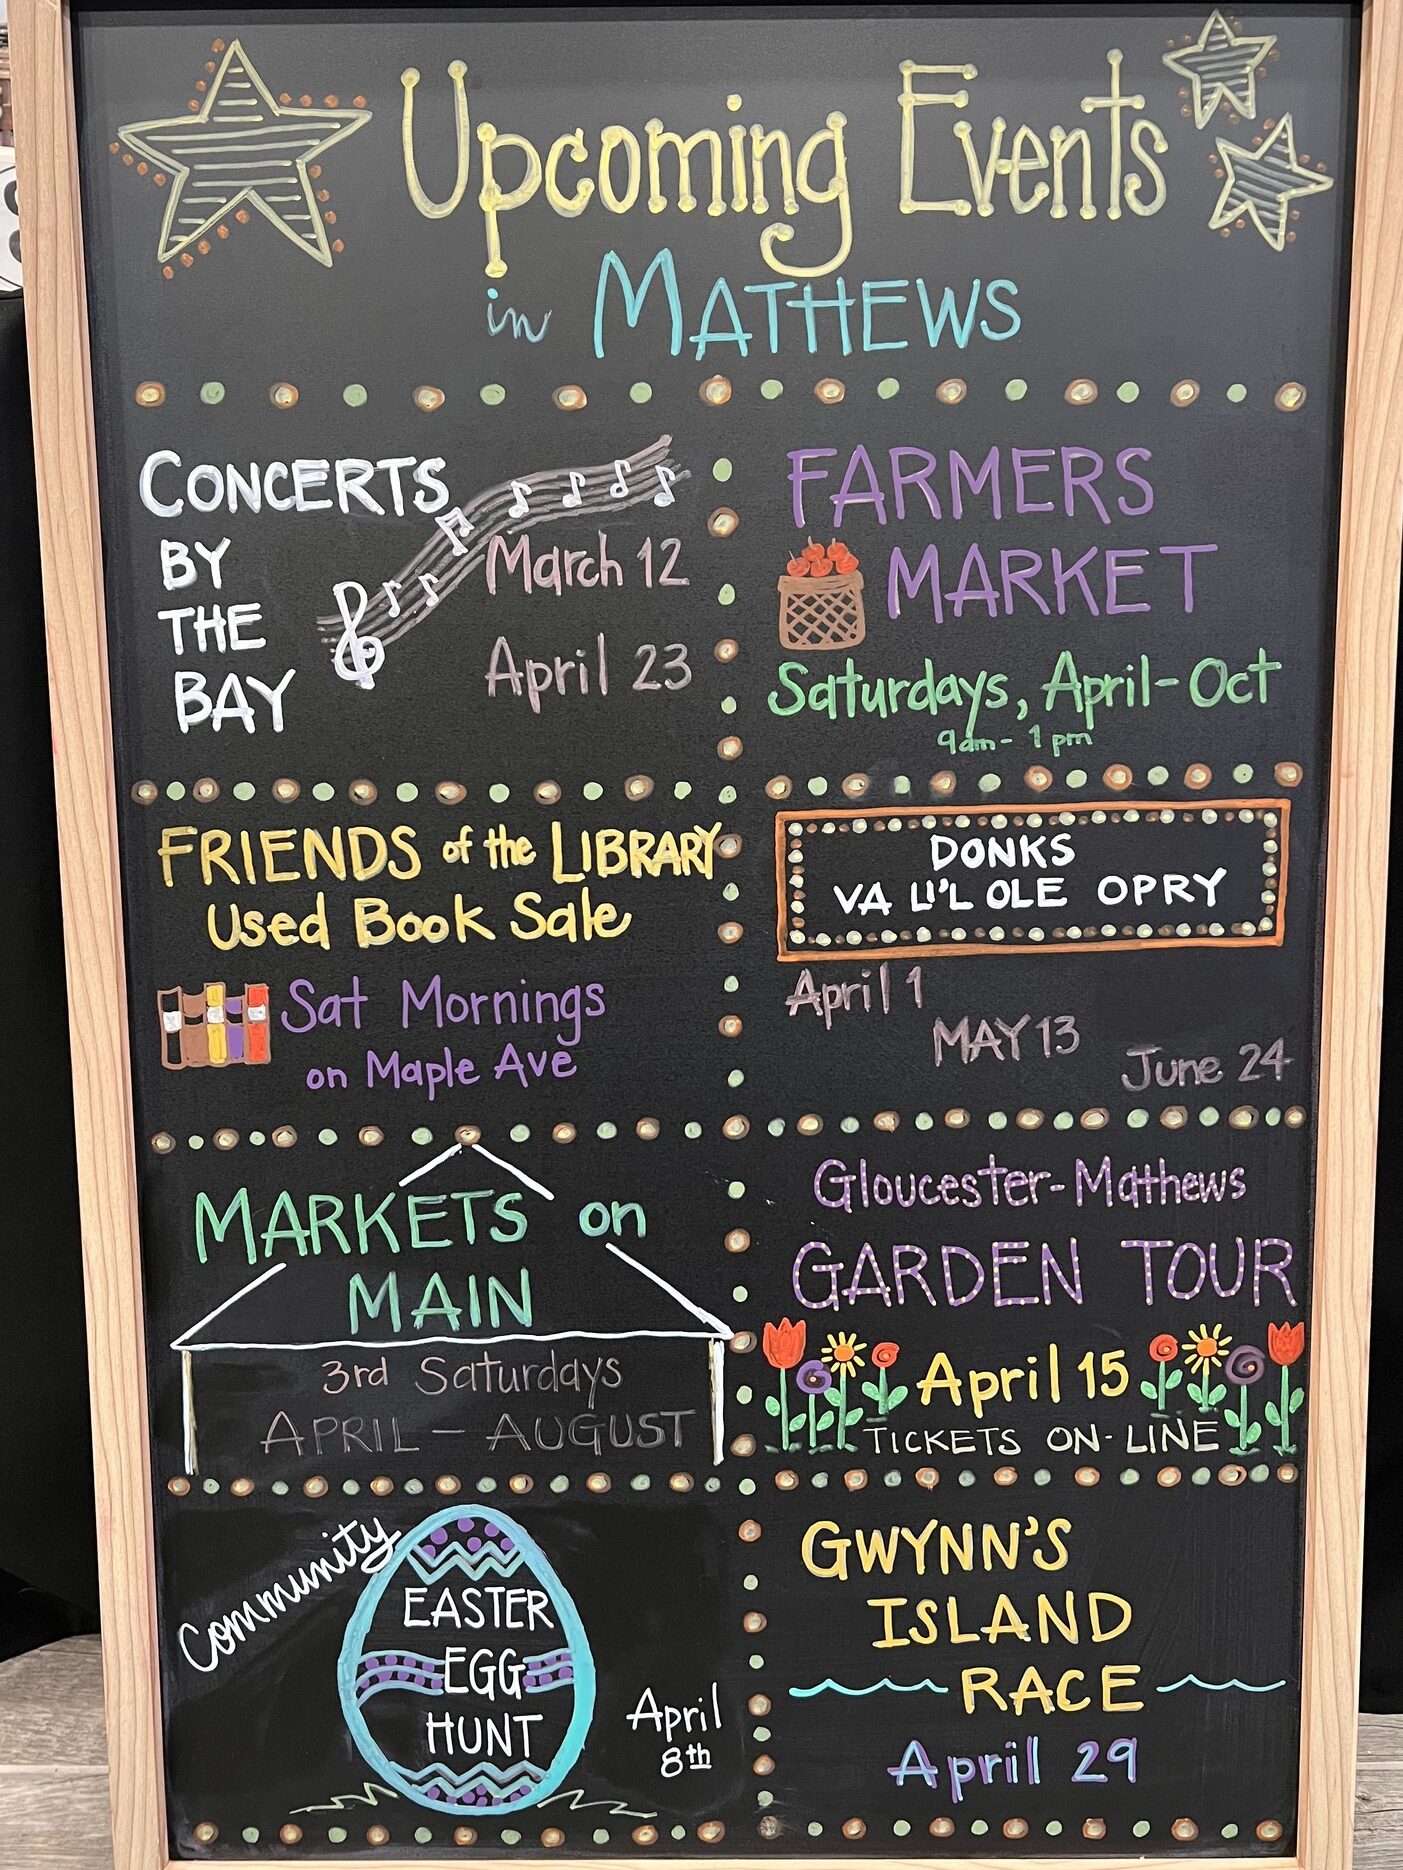 Upcoming Events
in MATHEWS
CONCERTS
BY
THE
BAY
March 12
April 23
FARMERS
MARKET
Saturdays, April-Oct
9am- 1 pm
FRIENDS of the LIBRARY
Used Book Sale
Sat Mornings
on Maple Ave
DONKS
VA LI'L OLE OPRY
April 1
MAY 13
June 24
MARKETS on
MAIN
3rd Saturdays
APRIL - AUGUST
Gloucester-Mathews
GARDEN TOUR
April 15
TICKETS ON-LINE
Community
EASTER
EGG
HUNT
April
8th
GWYNN'S
ISLAND
RACE
April 29